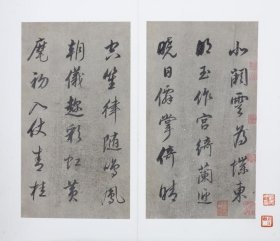 北闕雲為堞東
明玉作宮綺蘭迎
曉日僊掌倚晴
空笙律隨鳴鳳
朝儀趂彩虹黃
麾初入仗青桂